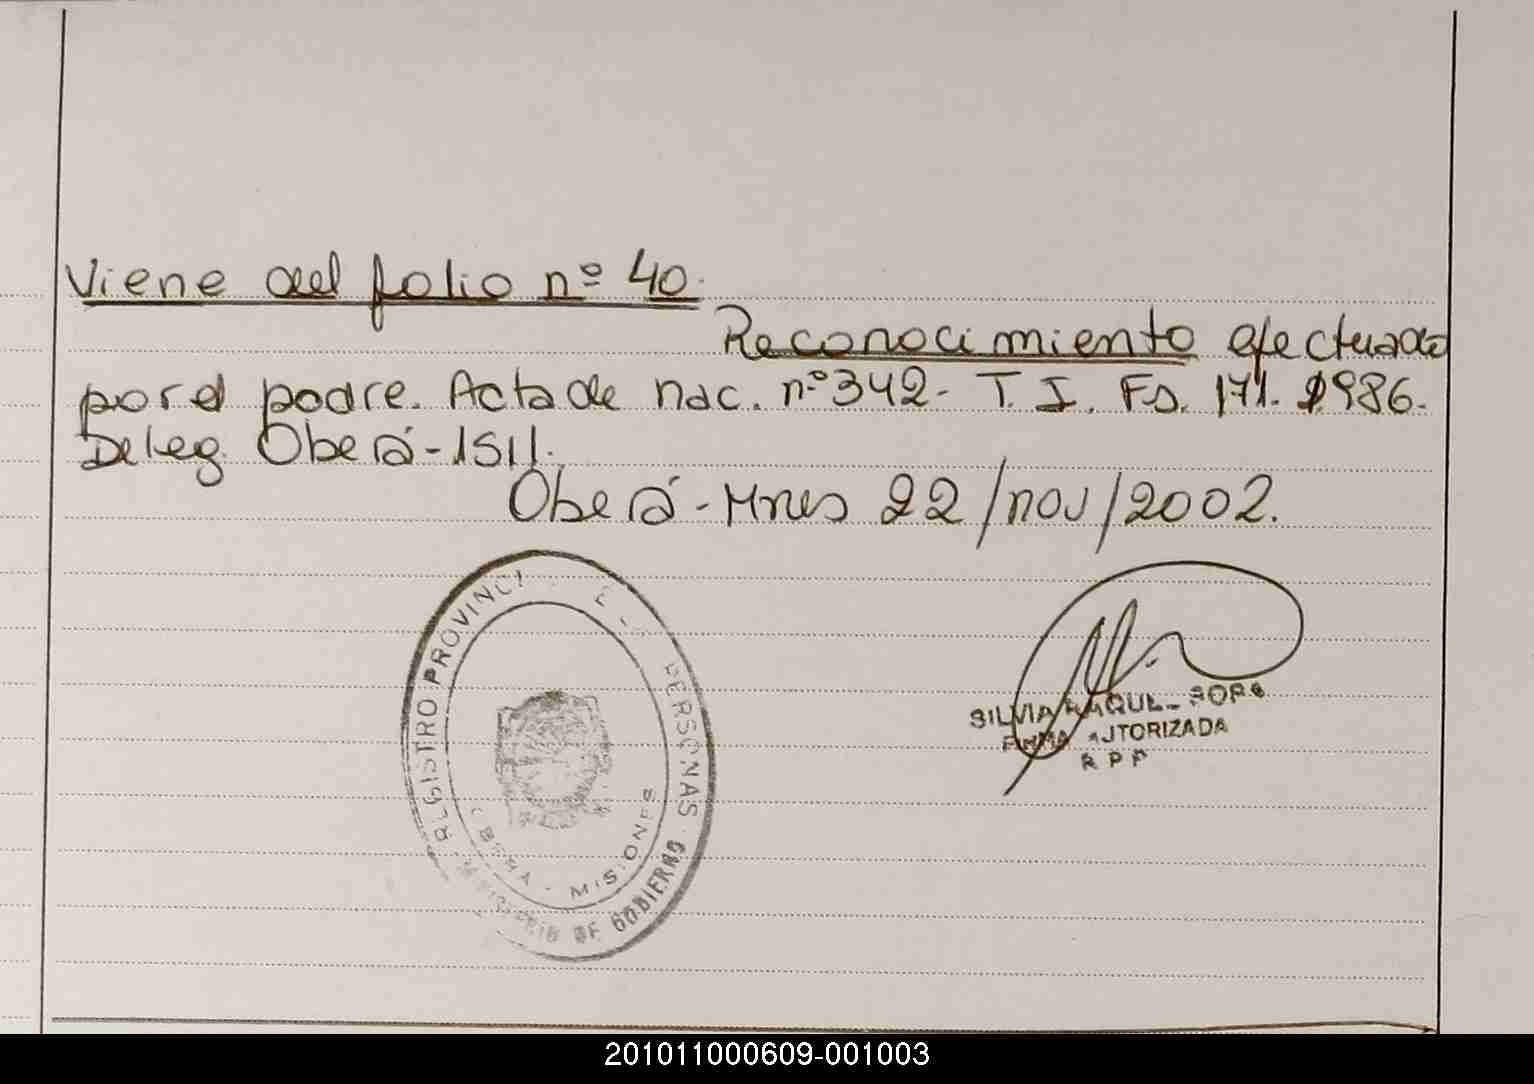 Viene del folio nº 40.
Reconocimiento efectuado
por el padre. Acta de nac. nº 342- T. I. Fs. 171. 1986.
Deleg. Oberá-1511.
Oberá-Mnes 22/nov/2002.
REGISTRO PROVINCI PERSONAS
MISIONES
MINISTERIO DE GOBIERNO
SILVIA RAQUEL
FIRMA AUTORIZADA
R P P
201011000609-001003